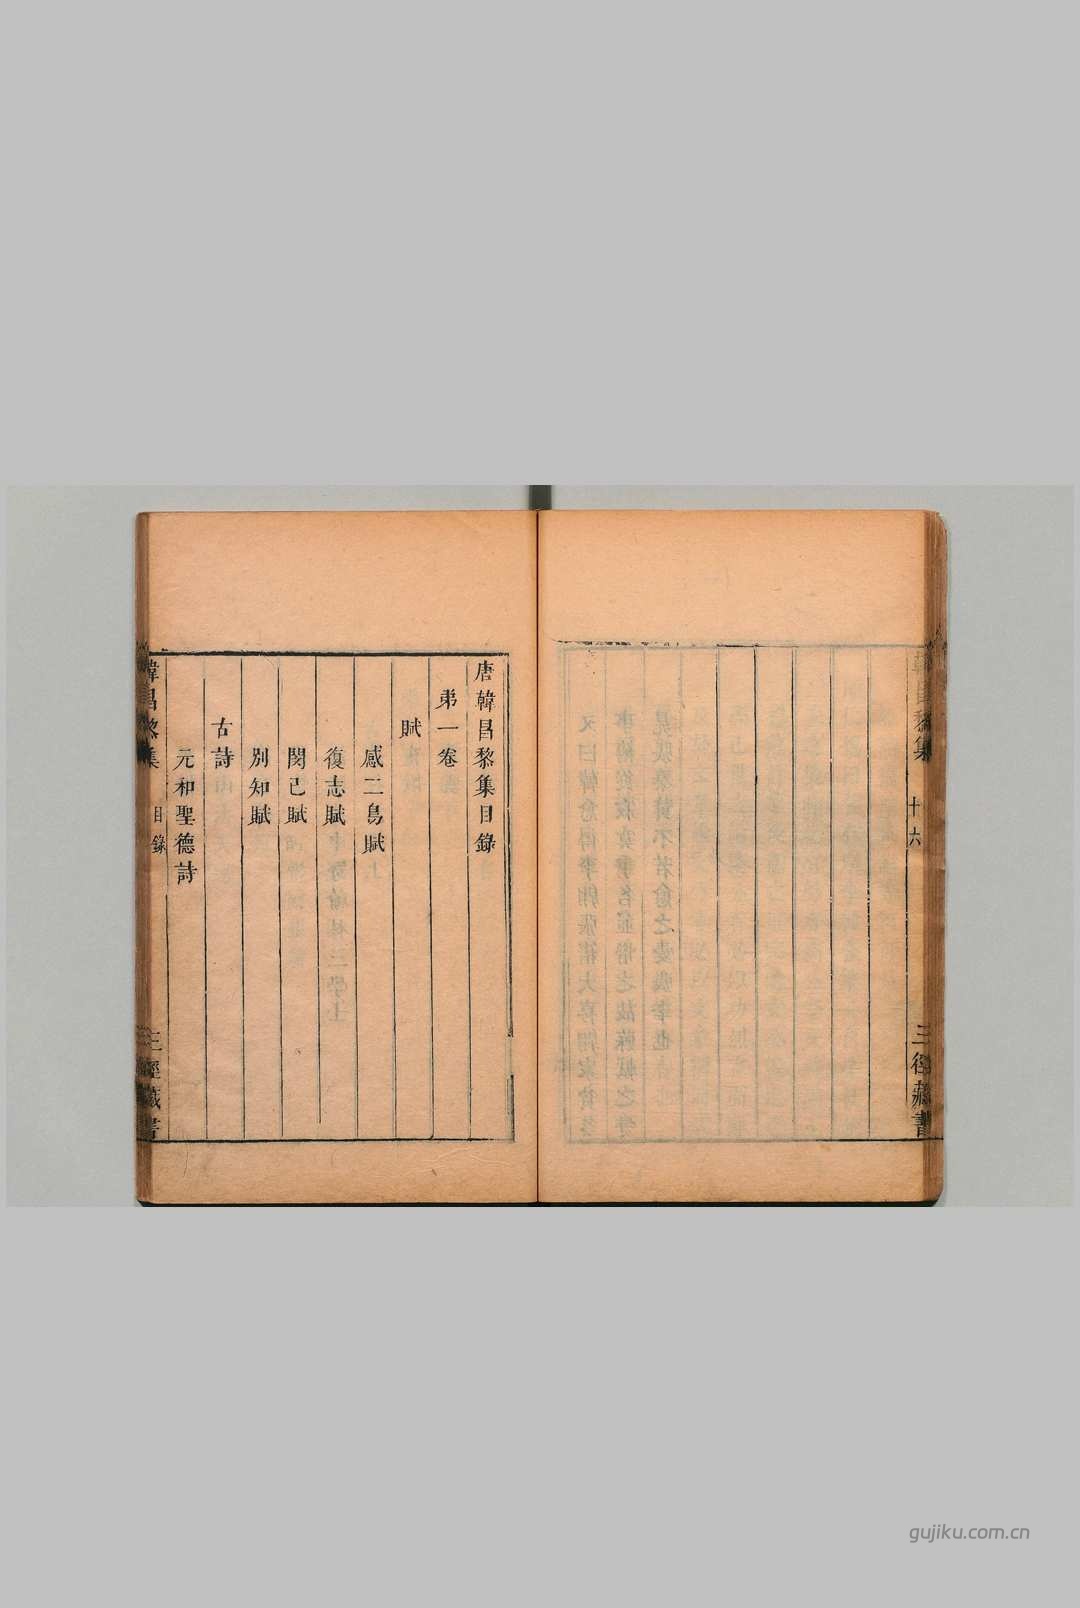 韓昌黎集
十六
三徑藏書
唐韓昌黎集目錄
弟一卷
賦
感二鳥賦
復志賦
閔己賦
別知賦
古詩
元和聖德詩
韓昌黎集
目錄
三徑藏書
gujiku.com.cn